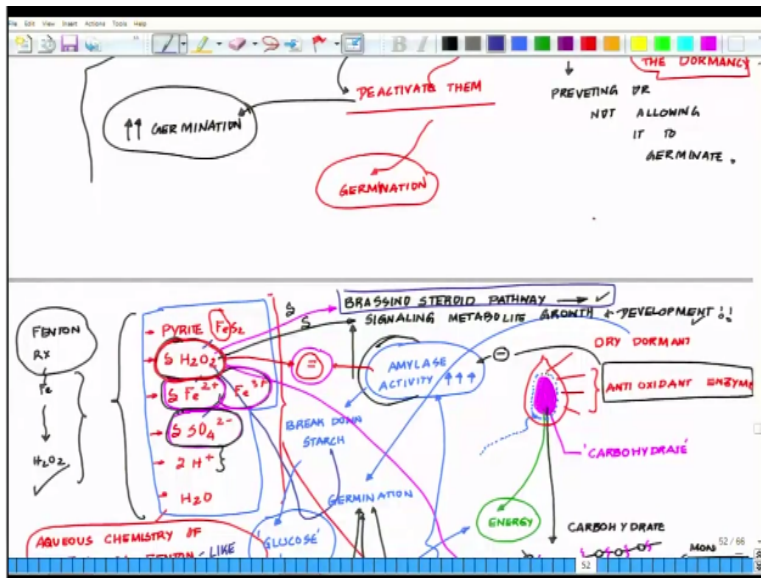 File Edit View Insert Actions Tools Help
THE DORMANCY
DEACTIVATE THEM
↑↑ GERMINATION
GERMINATION
PREVETING OR
NOT ALLOWING
IT TO
GERMINATE.
FENTON
RX
Fe
H2O2
PYRITE FeS2
S H2O2
S Fe2+ Fe3+
S SO4 2-
2 H+
H2O
AQUEOUS CHEMISTRY OF
FENTON - LIKE
S
S
BRASSINO STEROID PATHWAY → ✓
SIGNALING METABOLITE GROWTH + DEVELOPMENT !!
AMYLASE
ACTIVITY ↑↑↑
BREAK DOWN
STARCH
GERMINATION
'GLUCOSE'
DRY DORMANT
ANTI OXIDANT ENZYME
'CARBOHYDRASE'
ENERGY
CARBOHYDRATE
MON
52 / 66
52